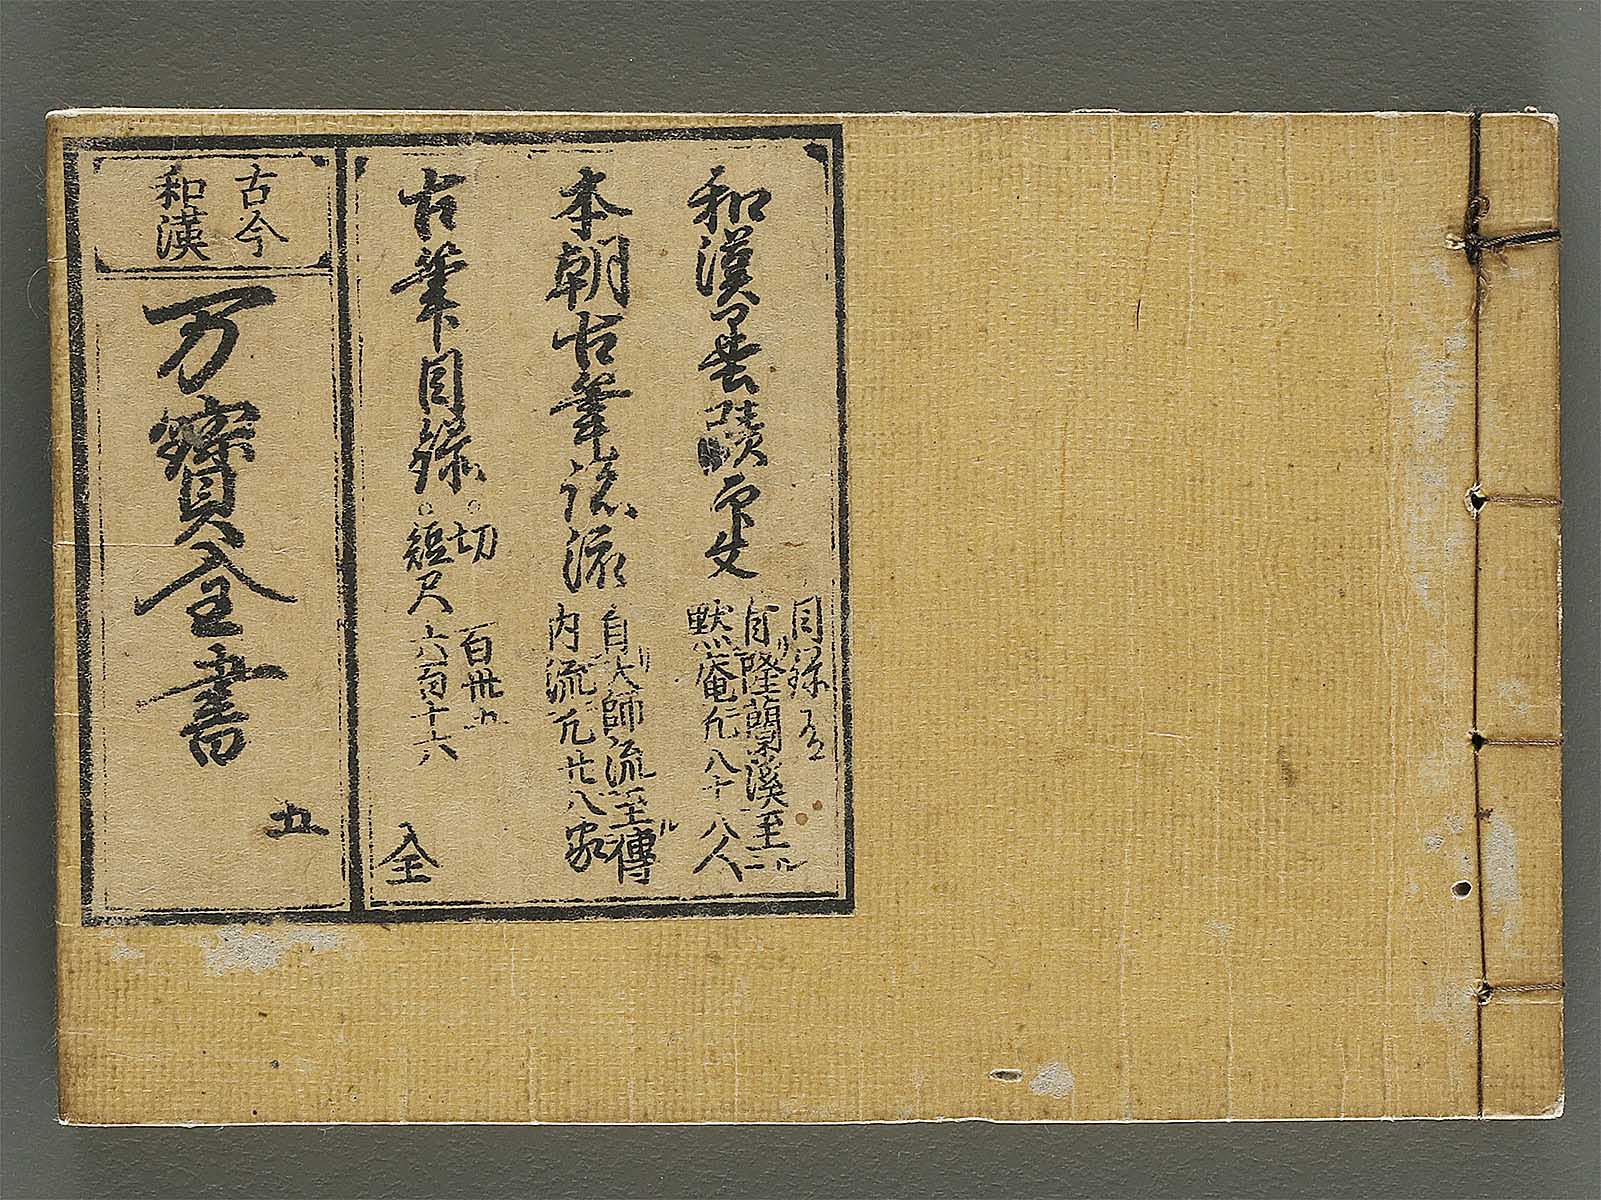 和漢墨蹟印尽
目録
自リ隆蘭溪至ル
黙庵凡八十八人
本朝古筆諸流
自リ大師流至ル傳
内流凡廿八家
古筆目録
。切 百卅九
。短尺 六百十六
全
古今
和漢
万寳全書
五